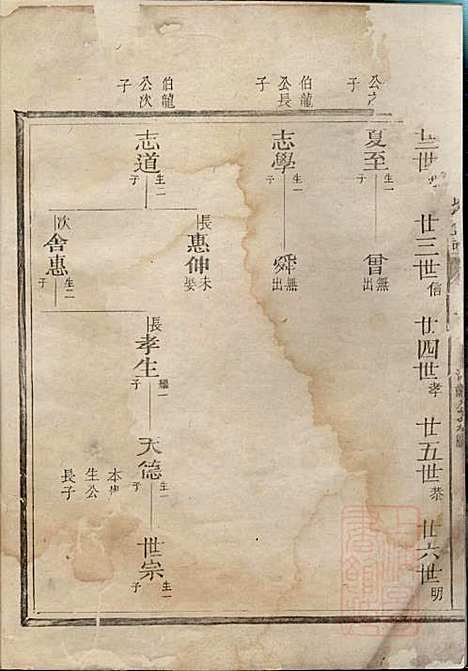 廿三世信
廿四世孝
廿五世恭
廿六世明
夏至
生一子
曾
無出
伯龍公長子
志學
生一子
舜
無出
伯龍公次子
志道
生二子
長惠伸
未娶
次舍惠
生一子
長孝生
繼一子
天德
生一子
世宗
生一子
生公
長子